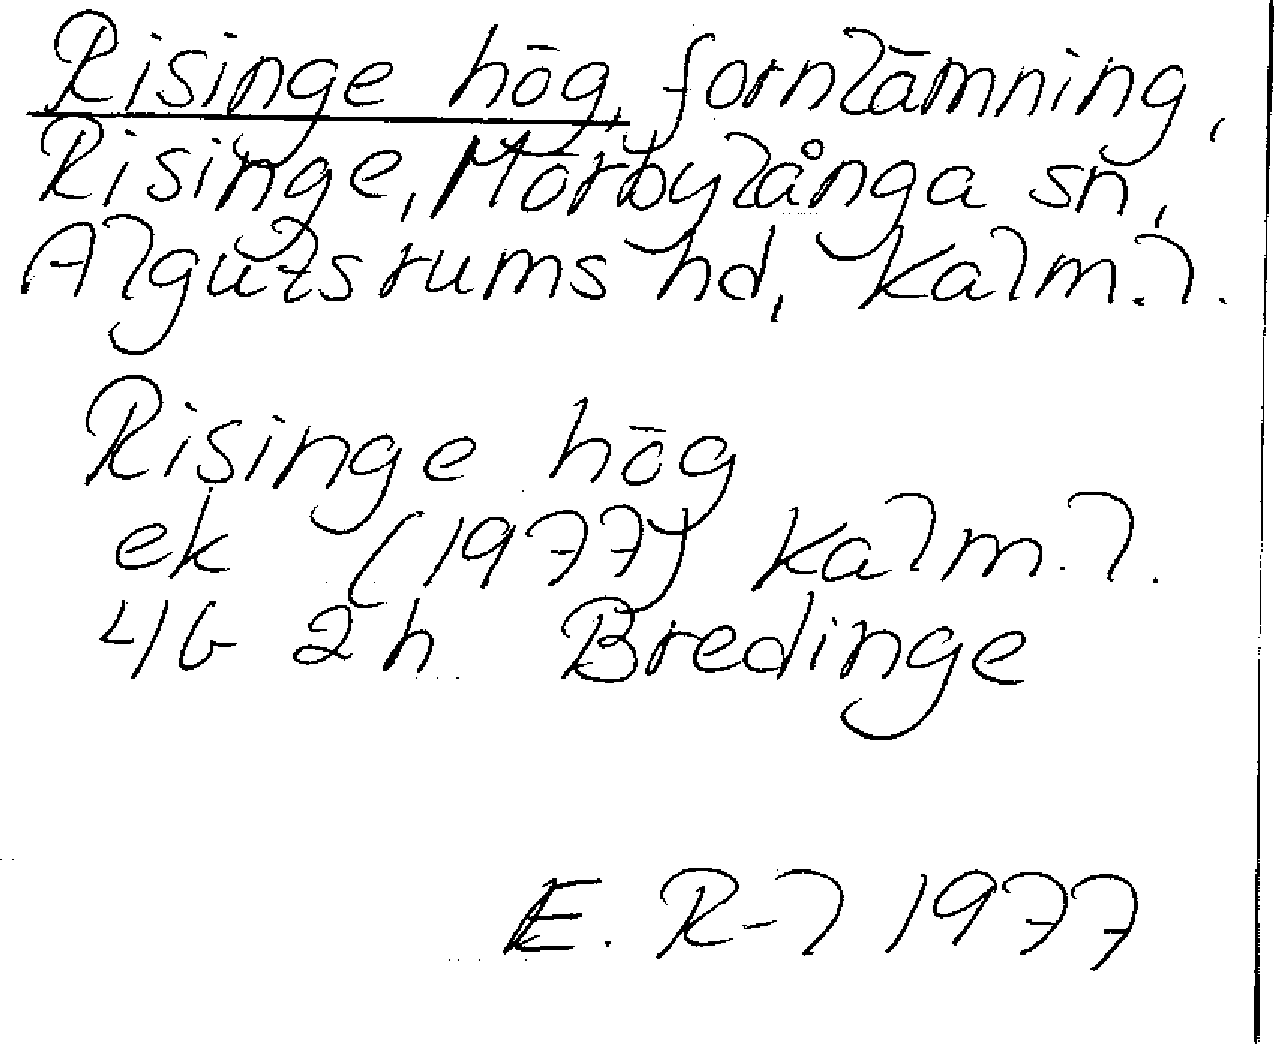 Risinge hög, fornlämning,
Risinge, Mörbylånga sn,
Algutsrums hd, Kalm. l.
Risinge hög
ek (1977) Kalm. l.
4G 2h Bredinge
E. R-l 1977